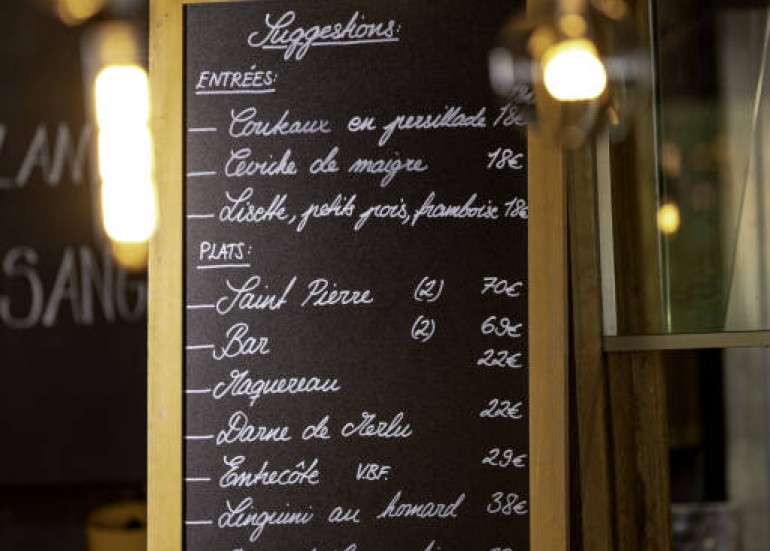 Suggestions:
ENTRÉES:
— Couteaux en persillade 18€
— Ceviche de maigre 18€
— Lisette, petits pois, framboise 18€
PLATS:
— Saint Pierre (2) 70€
— Bar (2) 69€
— Maquereau 22€
— Darne de Merlu 22€
— Entrecôte V.B.F. 29€
— Linguini au homard 38€
SANG